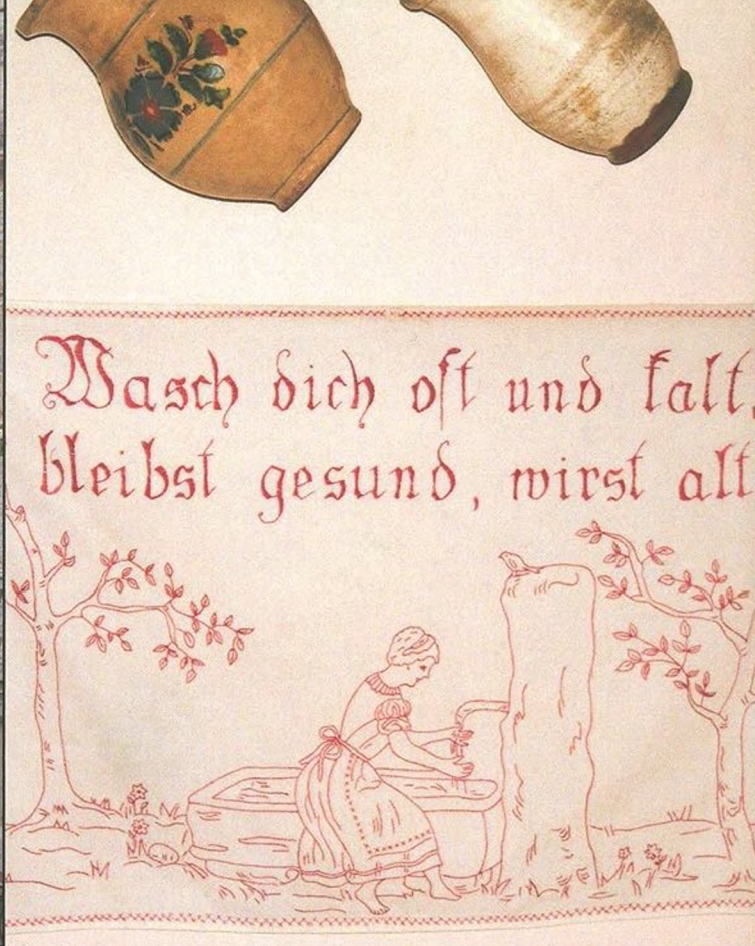 Wasch dich oft und kalt,
bleibst gesund, wirst alt